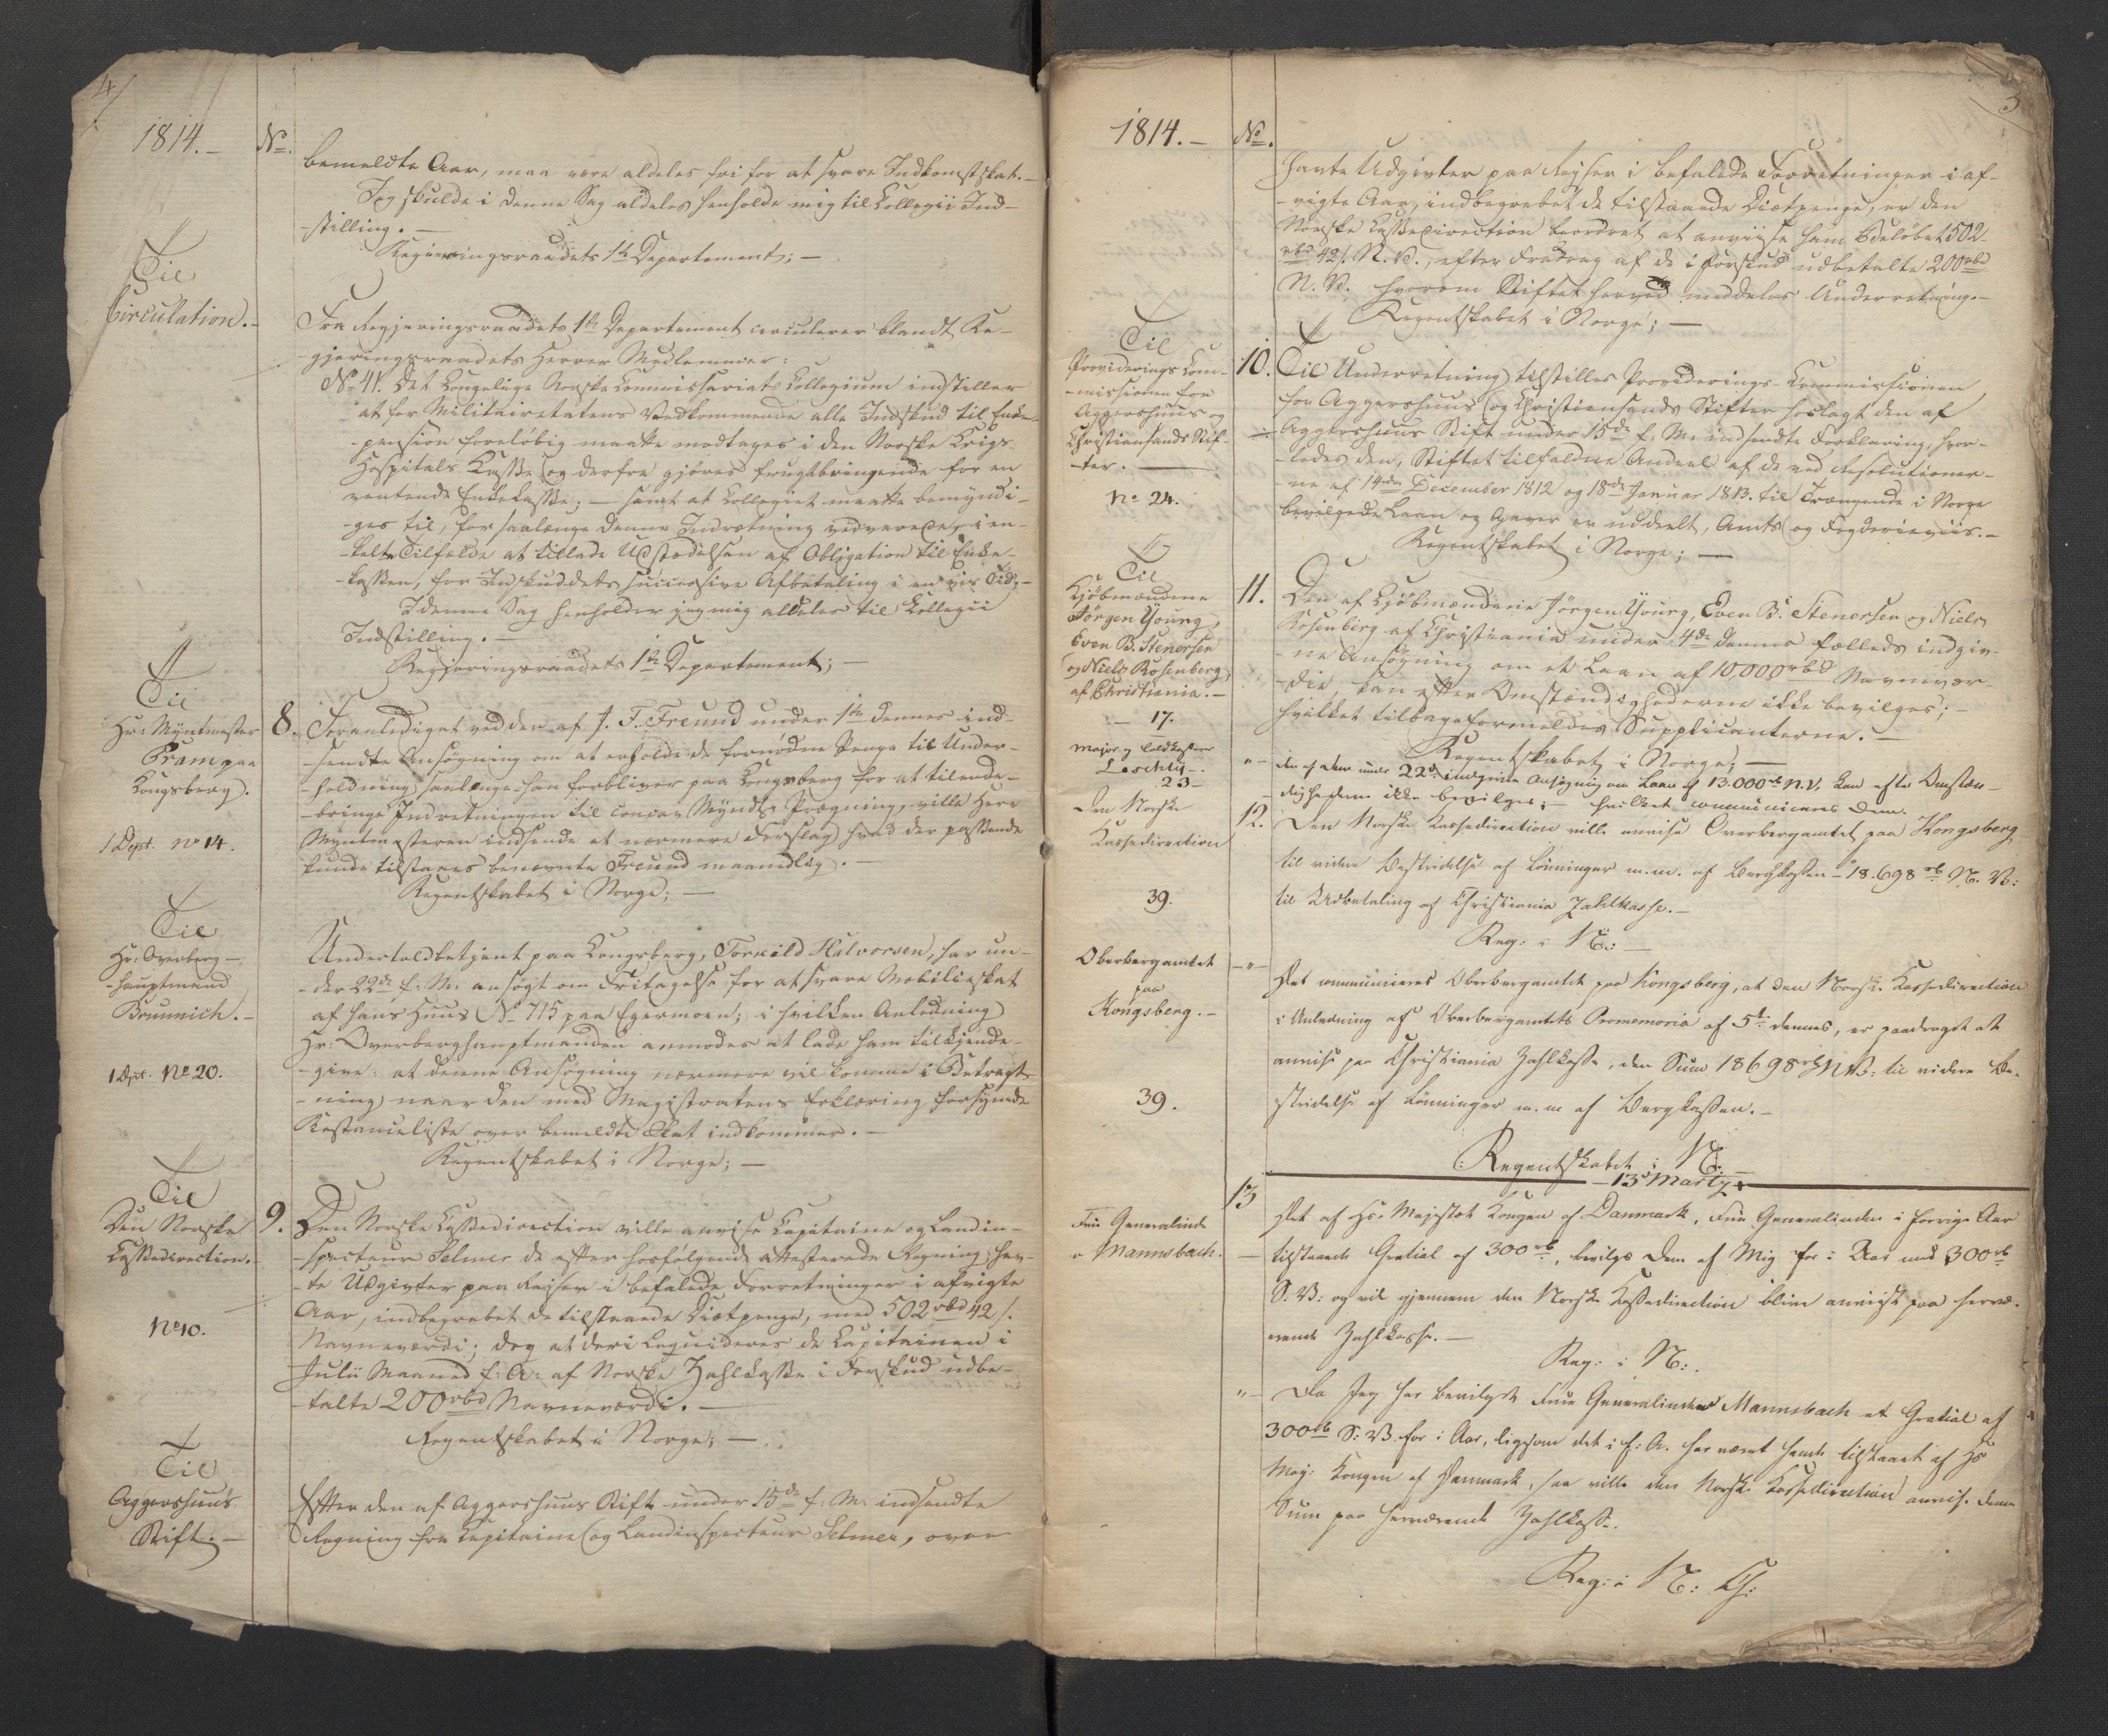 4
1814.- No.
bemeldte Aar, maa være aldeles fri for at svare Indkomstskat.-
Jeg skulde i denne Sag aldeles henholde mig til Collegii Ind-
-stilling.-
Regieringsraadets 1ste Departement;-
Til
Circulation.-
Fra Regjeringsraadets 1ste Departement circulerer blandt Re-
gjeringsraadets Herrer Medlemmer:
No 41. Det Kongelige Norske Commissariats Collegium indstiller
at for Militairetatens Vedkommende alle Indskud til Enke-
-pension foreløbig maatte modtages i den Norske Krigs-
Hospitals Kasse og derfra gjøres frugtbringende for en
ventende Enkekasse;- samt at Collegiet maatte bemyndi-
-ges til, for saalænge denne Indretning vedvarer, i en-
-kelte Tilfælde at tillade Udstædelsen af Obligation til Enke-
-kassen, for Indskuddets successive Afbetaling i en vis Tid;-
I denne Sag henholder jeg mig aldeles til Collegii
Indstilling.-
Regjeringsraadets 1ste Departement;-
Til
Hr: Myntmester
Pram paa
Kongsberg.
1 Dept. No 14.
8. Foranlediget ved den af J. F. Freund under 1ste dennes ind-
-sendte Ansøgning om at erholde de fornødne Penge til Under-
-holdning saalænge han forbliver paa Kongsberg for at tilende-
-bringe Indretningen til concav Mynts Prægning, ville Herr
Myntmesteren indsende et nærmere Forslag hvad der passende
kunde tilstaaes benævnte Freund maanedlig.-
Regentskabet i Norge;-
Til
Hr: Overberg-
-hauptmand
Brünnich.-
1 Dpt. No 20.
Undertoldbetjent paa Kongsberg, Torkild Halvorsen, har un-
-der 22de f: M: ansøgt om Fritagelse for at svare Mobilieskat
af hans Huus No 715 paa Egermoen; i hvilken Anledning
Hr: Overberghauptmanden anmodes at lade ham tilkjende-
-give: at denne Ansøgning nærmere vil komme i Betragt-
-ning naar den med Magistratens Erklæring forsynede
Restanceliste over bemeldte Skat indkommer.-
Regentskabet i Norge;-
Til
Den Norske
Cassedirection.-
No 10.
9. Den Norske Cassedirection ville anvise Capitaine og Landin-
-specteur Selmer de efter hosfølgende attesterede Regning hav-
-te Udgivter paa Reiser i befalede Forretninger i afvigte
Aar, indbegrebet de tilstaaede Diætpenge, med 502 rbd 42 s.
Navneværdi; dog at deri liquideres de Capitainen i
Julii Maaned f: A: af Norske Zahlkasse i Forskud udbe-
-talte 200 rbd Navneværdi.-
Regentskabet i Norge;-
Til
Aggershuus
Stift.-
Efter den af Aggershuus Stift under 15de f: M: indsendte
Regning fra Capitaine og Landinspecteur Selmer, over
5
1814.- No.
havte Udgivter paa Reyser i befalede Forretninger i af-
-vigte Aar, indbegrebet de tilstaaede Diætpenge, er den
Norske Cassedirection beordret at anviise ham Beløbet 502
rbd 42 s. N. V., efter Fradrag af de i Forskud udbetalte 200 rbd
N. V. hvorom Stiftet herved meddeles Underretning.-
Regentskabet i Norge;-
Til
Providerings Com-
-missionen for
Aggershuus og
Christiansands Stif-
-ter.-
No 24.
10. Til Underretning tilstilles Providerings-Commissionen
for Aggershuus og Christiansands Stifter hoslagt den af
Aggershuus Stift under 15de f: M: indsendte Forklaring, hvor-
-ledes den, Stiftet tilfaldne Andeel af de ved Resolutioner-
-ne af 14de December 1812 og 18de Januar 1813. til Trængende i Norge
bevilgede Laan og Gaver er uddeelt, Amts og Fogderieviis.-
Regentskabet i Norge;-
Til
Kjøbmændene
Jørgen Young,
Even B. Stenersen
og Niels Rosenberg,
af Christiania.-
- 17.
11. Den af Kjøbmændene Jørgen Young, Even B. Stenersen og Niels
Rosenberg af Christiania under 4de dennes fælleds indgiv-
-ne Ansøgning om et Laan af 10,000 rbd Navnevær-
-die, kan efter Omstændighederne ikke bevilges;-
hvilket tilbagemeldes Supplicanterne.-
Regentskabet i Norge;-
Major og Toldkasserer
Leschly-
23-
"- den af dem under 22de indgivne Ansøgning om Laan af 13.000 rb N.V. kan efter Omstæn-
dighederne ikke bevilges;- hvilket communiceres Dem.
Den Norske
Kassedirection
39.
12. Den Norske Kassedirection ville anvise Overbergamtet paa Kongsberg
til videre Bestridelse af Lønninger m.m. af Bergkassen - 18.698 rb N. V:
til Udbetaling af Christiania Zahlkasse.-
Reg: i N:-
Oberbergamtet
paa
Kongsberg.-
39.
-"- Det communiceres Oberbergamtet paa Kongsberg, at den Norske Kassedirection
i Anledning af Oberbergamtets Promemoria af 5te dennes, er paadraget at
anvise paa Christiania Zahlkasse, den Sum 18698 rb N.V: til videre Be-
stridelse af Lønninger m.m af Bergkassen.-
Regentskabet i N:
-13 Marty-
Frue Generalinde
v Mannsbach.
13 Det af Hs. Majestæt Kongen af Danmark, Frue Generalinden i forrige Aar
tilstaaede Gratial af 300 rb, bevilges Dem af Mig for i Aar med 300 rb
S: V: og vil gjennem den Norske Kassedirection blive anviist paa hervæ-
rende Zahlkasse.-
Reg: i N:.
"- Da Jeg har bevilget Frue Generalinde Mannsbach et Gratial af
300 rb S: V. for i Aar, ligesom det i f: A. har været hende tilstaaet af Hs
Maj: Kongen af Danmark, saa ville den Norske Kassedirection anvise denne
Sum paa herværende Zahlkasse.
Reg: i N: Ch: